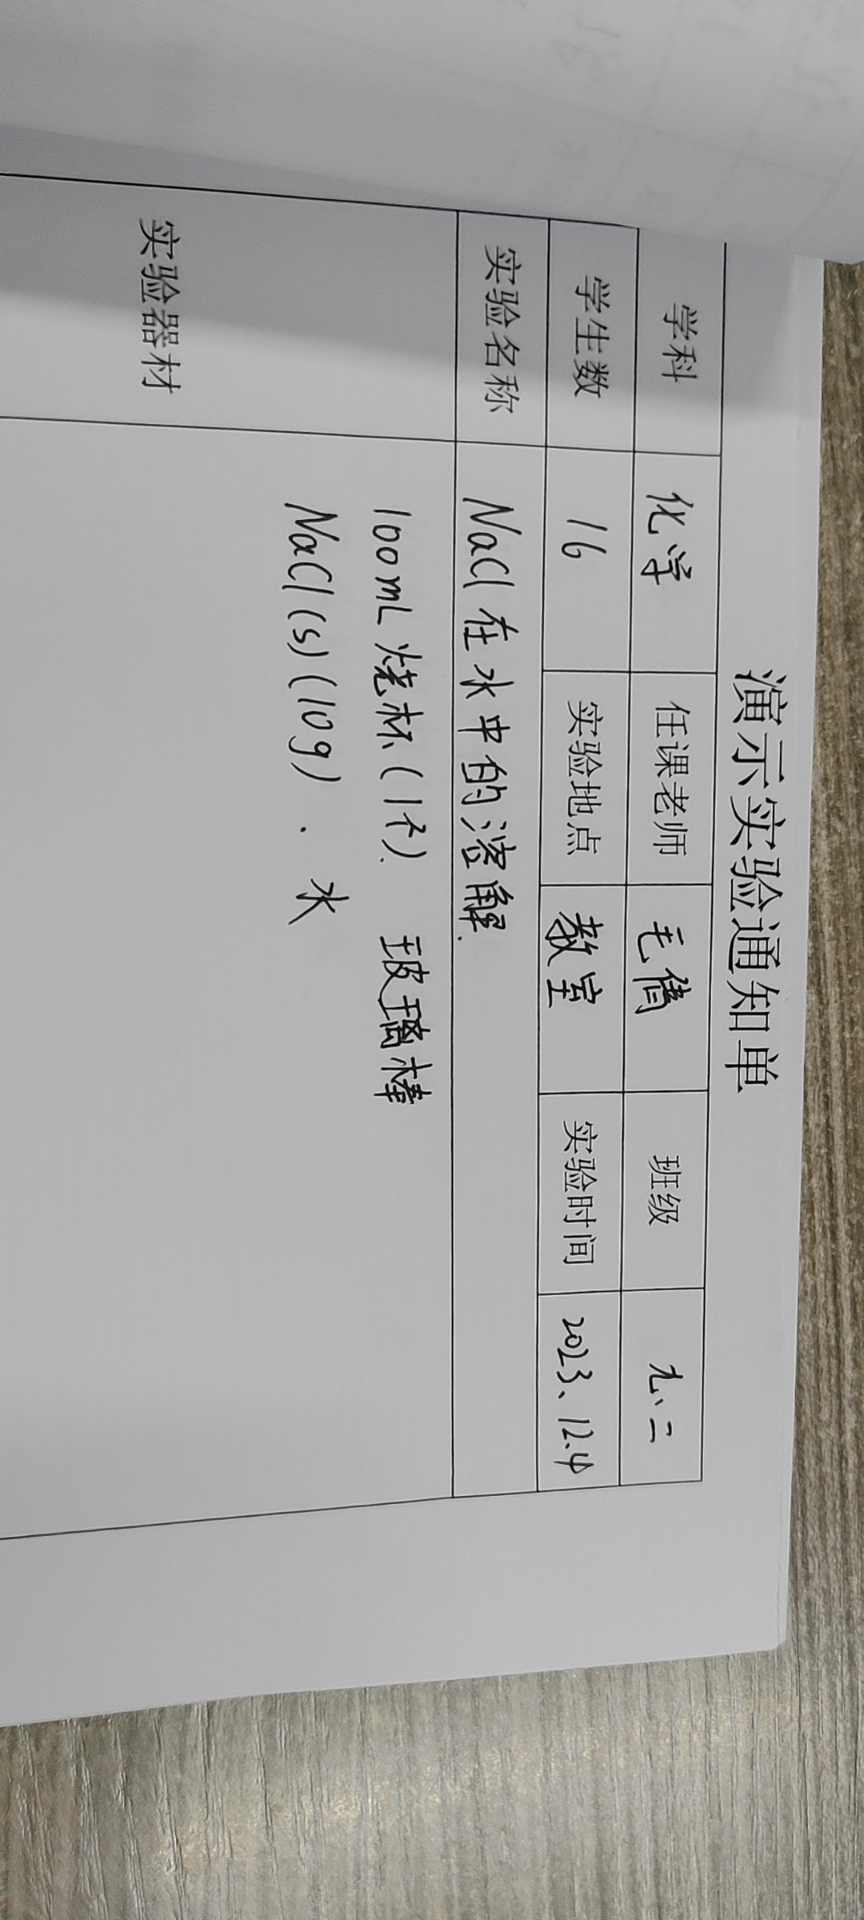 演示实验通知单
学科 化学 任课老师 毛倩 班级 九、二
学生数 16 实验地点 教室 实验时间 2023、12.4
实验名称 NaCl在水中的溶解.
实验器材 100mL烧杯(1个)、玻璃棒
NaCl(s)(10g)、水